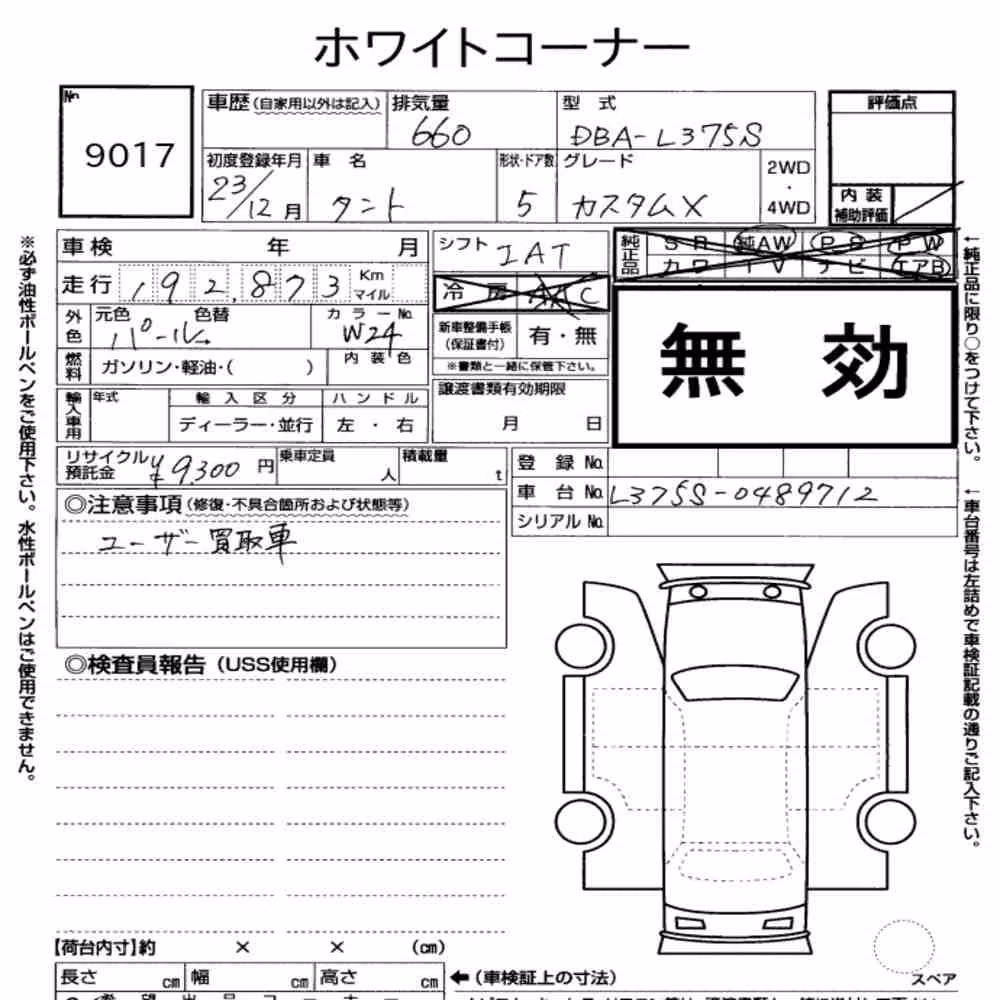 ホワイトコーナー
No. 9017
車歴(自家用以外は記入) 排気量 660 型 式 DBA-L375S 評価点
初度登録年月 23/12月 車 名 タント 形状・ドア数 5 グレード カスタムX 2WD・4WD
内装補助評価
車検 年 月 シフト IAT 純正品 SR 純AW PS PW
カワ TV ナビ エアB
走行 192,873 Km マイル 冷房 AAC
外色 元色 パール 色替 カラーNo. W24 新車整備手帳(保証書付) 有・無
無 効
燃料 ガソリン・軽油・( ) 内装色 ※書類と一緒に保管下さい。
輸入車用 年式 輸入区分 ハンドル 譲渡書類有効期限
ディーラー・並行 左・右 月 日
リサイクル預託金 ¥9,300円 乗車定員 人 積載量 t 登 録 No.
車 台 No. L375S-0489712
シリアル No.
◎注意事項(修復・不具合箇所および状態等)
ユーザー買取車
◎検査員報告(USS使用欄)
【荷台内寸】約 × × (cm)
長さ cm 幅 cm 高さ cm ←(車検証上の寸法) スペア
※必ず油性ボールペンをご使用下さい。水性ボールペンはご使用できません。
←純正品に限り○をつけて下さい。
←車台番号は左詰めで車検証記載の通りご記入下さい。